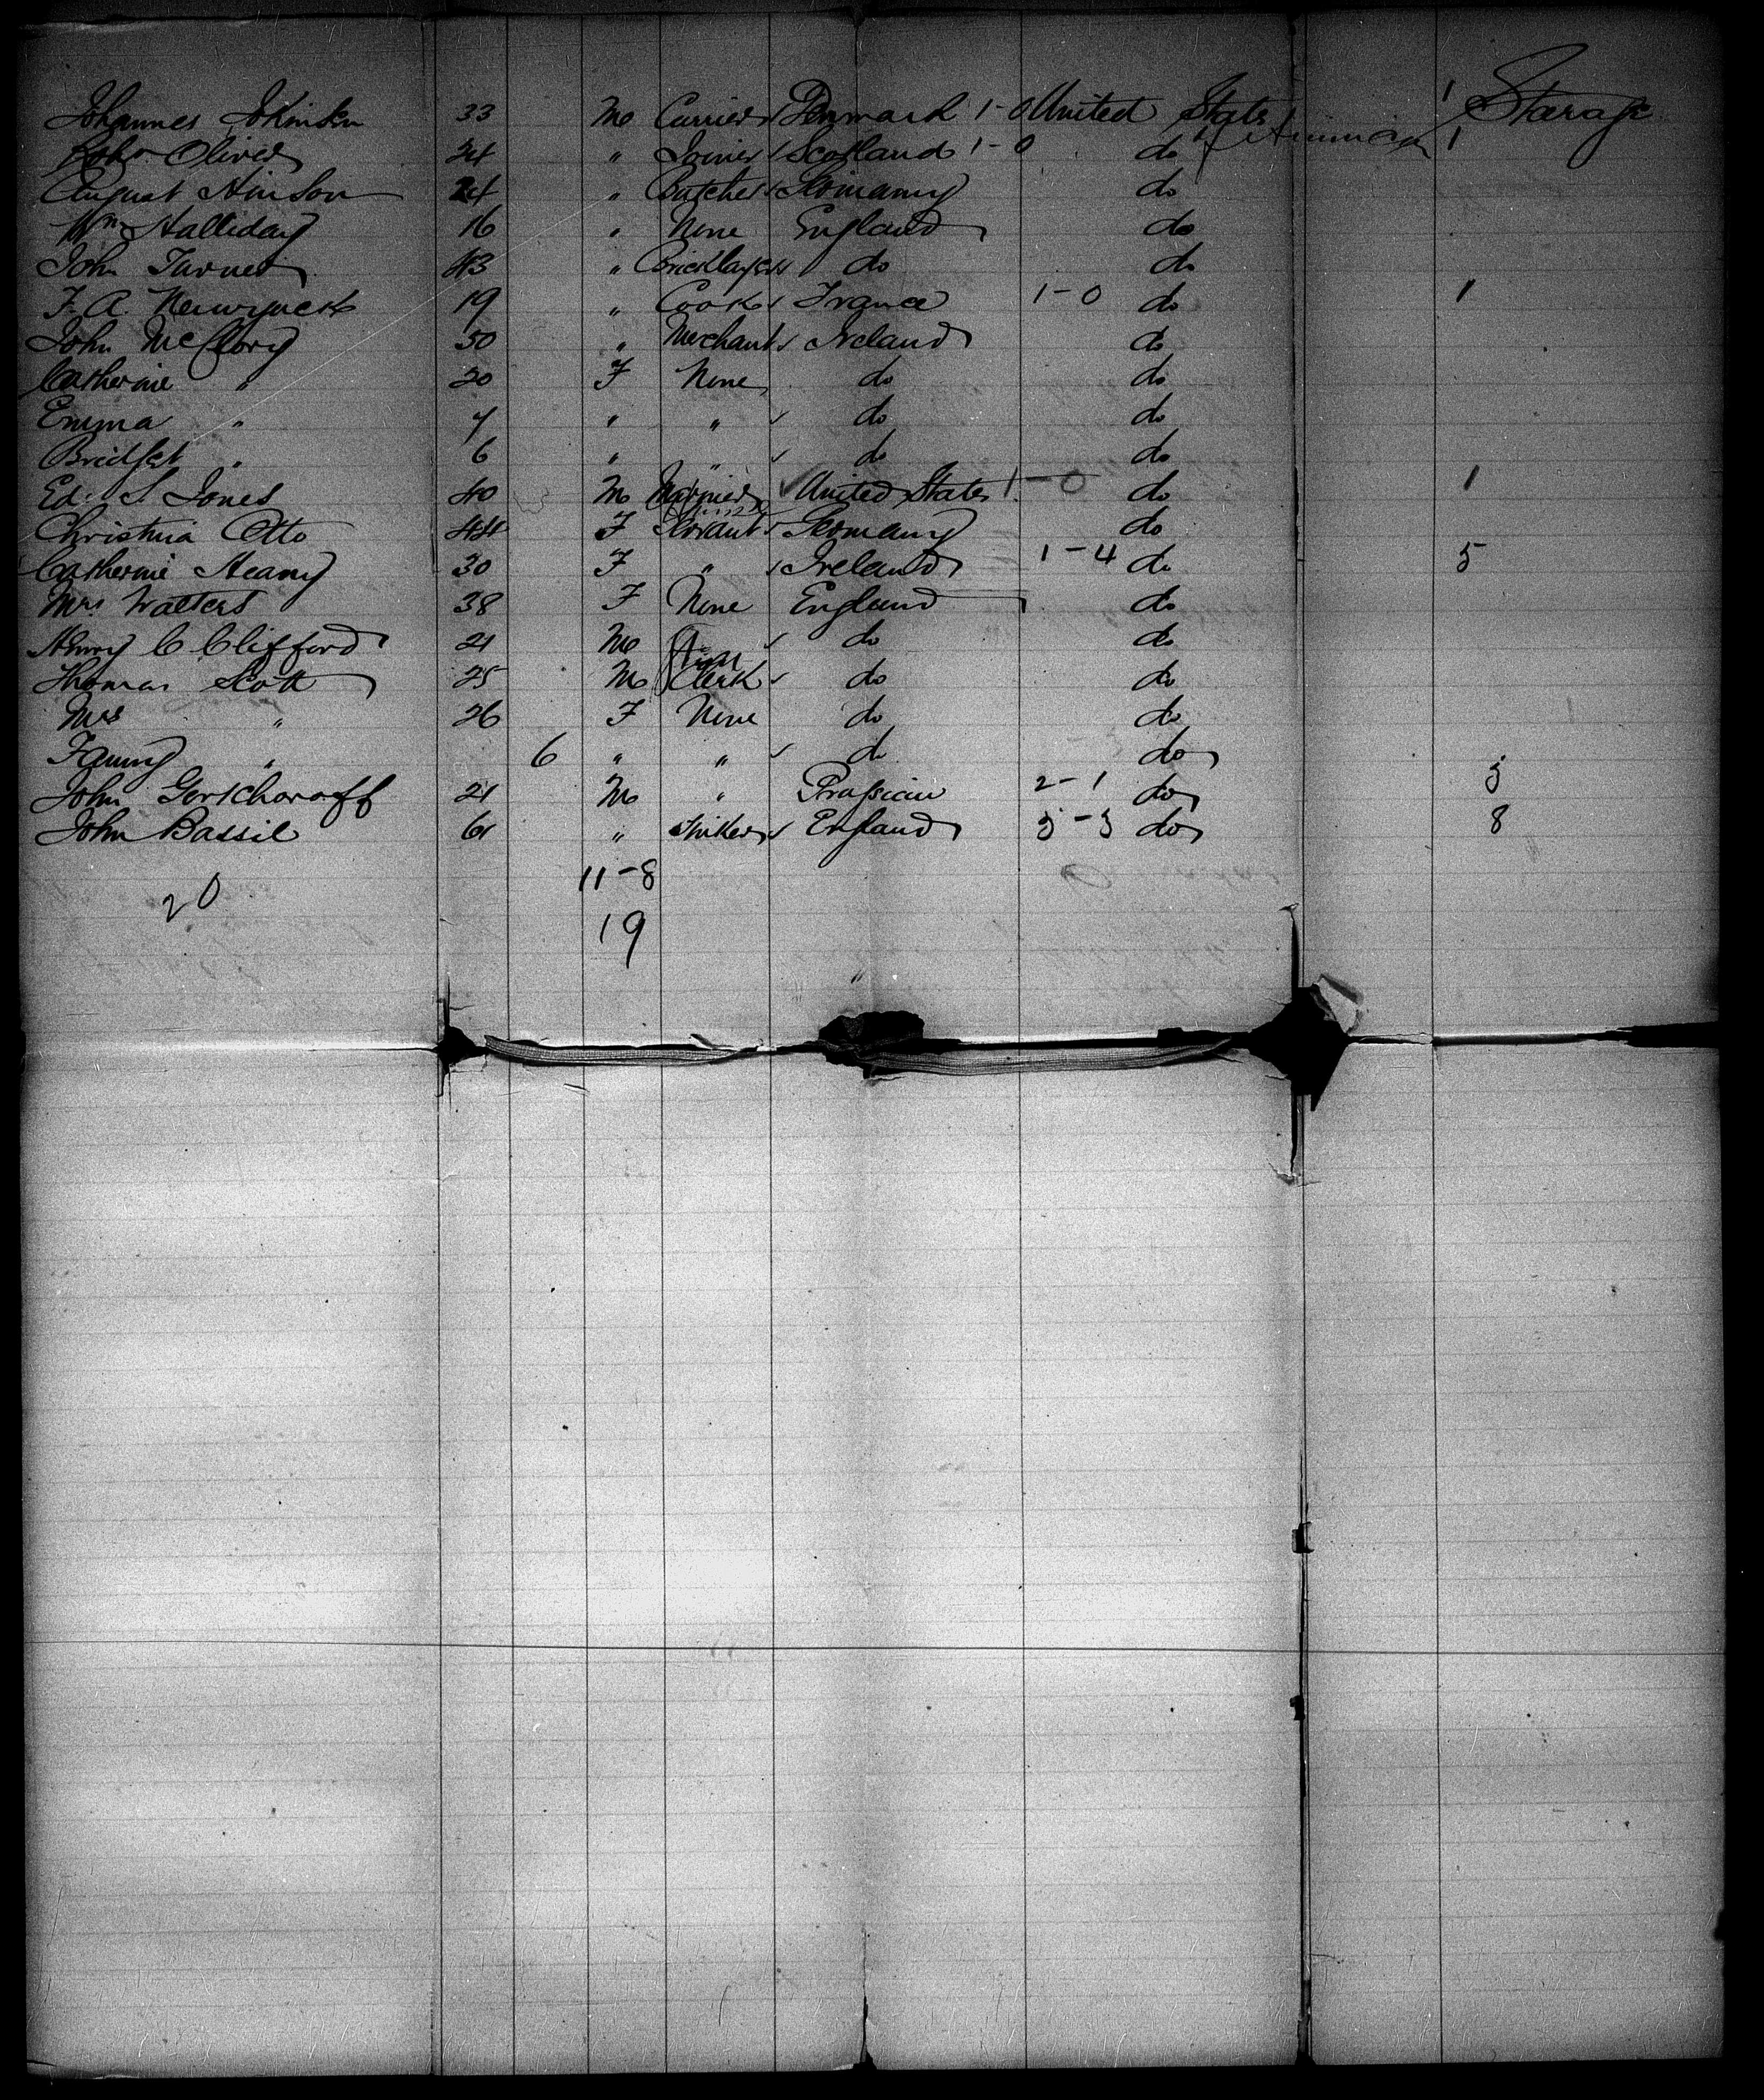 Johannes Johinsen 33 M Currier Denmark 1-0 United States 1 Starage
John Oliver 24 " Joiner Scotland 1-0 do 1
August Hinson 24 " Butcher Germany do
Wm Halliday 16 " None England do
John Turner 43 " Bricklayer do do
F. A. 19 " Cook France 1-0 do 1
John McClory 50 " Merchant Ireland do
Catherine " 20 F None do do
Emma " 7 " " do do
Bridget " 6 " " do do
Ed. S Jones 40 M United States 1-0 do 1
Christina Otto 44 F Servant Germany do
Catherine Heany 30 F " Ireland 1-4 do 5
Mrs Watters 38 F None England do
Henry C Clifford 21 M do do
Thomas Scott 25 M Clerk do do
Mrs " 26 F None do do
Fanny " 6 " " do do
John Gortcharoff 21 M " Prussian 2-1 do 3
John Bassil 61 " England 5-3 do 8
11-8
20
19